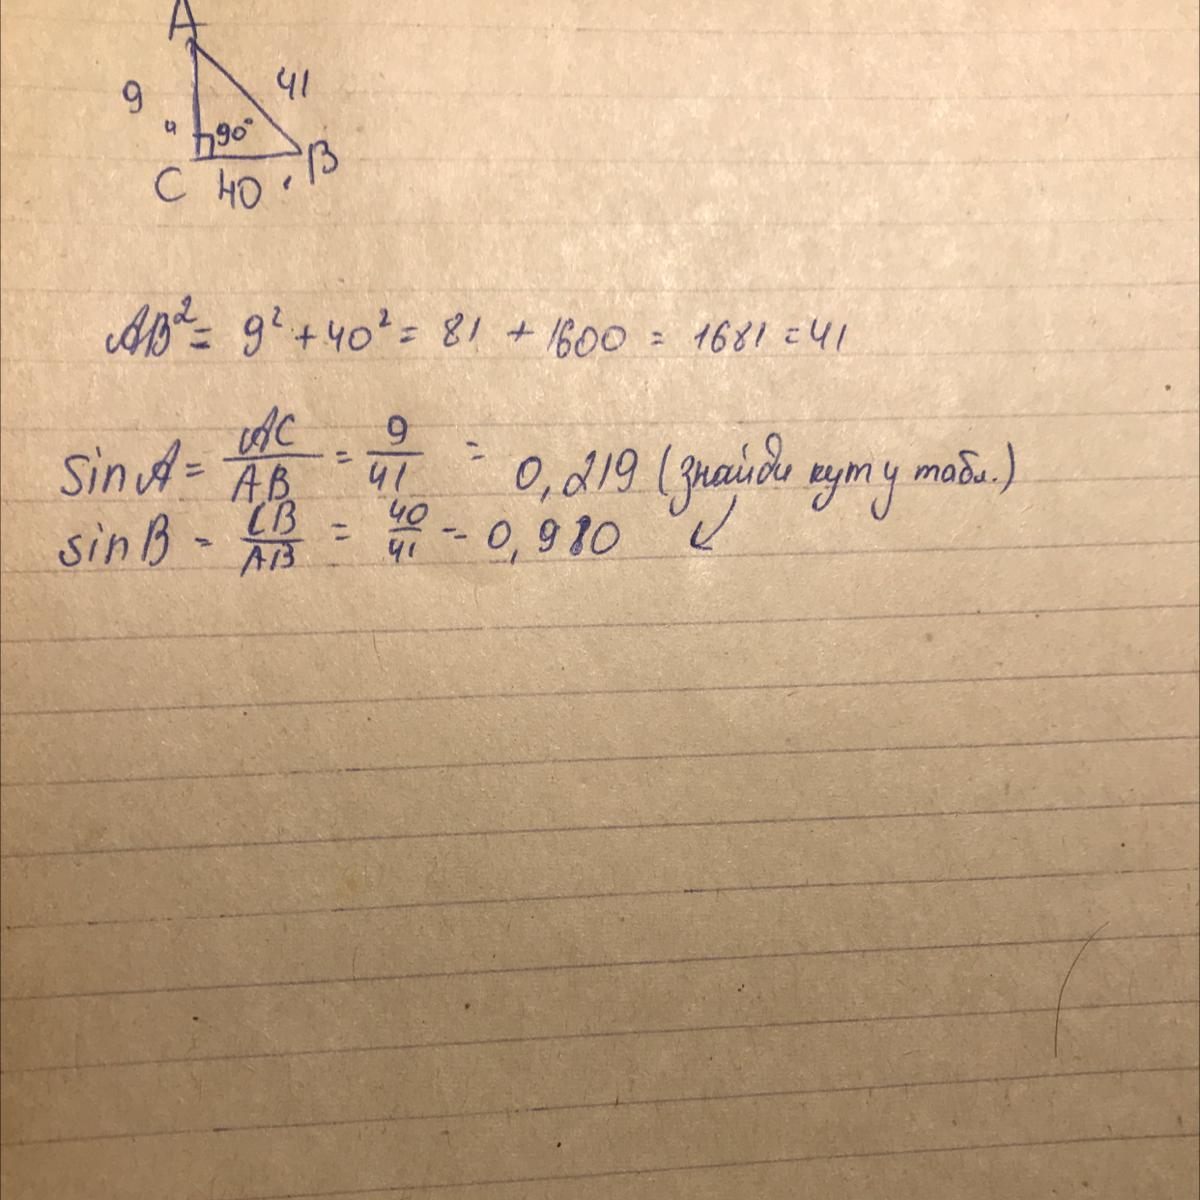 A
9
41
90°
C
40
B
AB² = 9² + 40² = 81 + 1600 = 1681 = 41
sin A = AC/AB = 9/41 = 0,219 (знайди кут у табл.)
sin B = CB/AB = 40/41 = 0,980